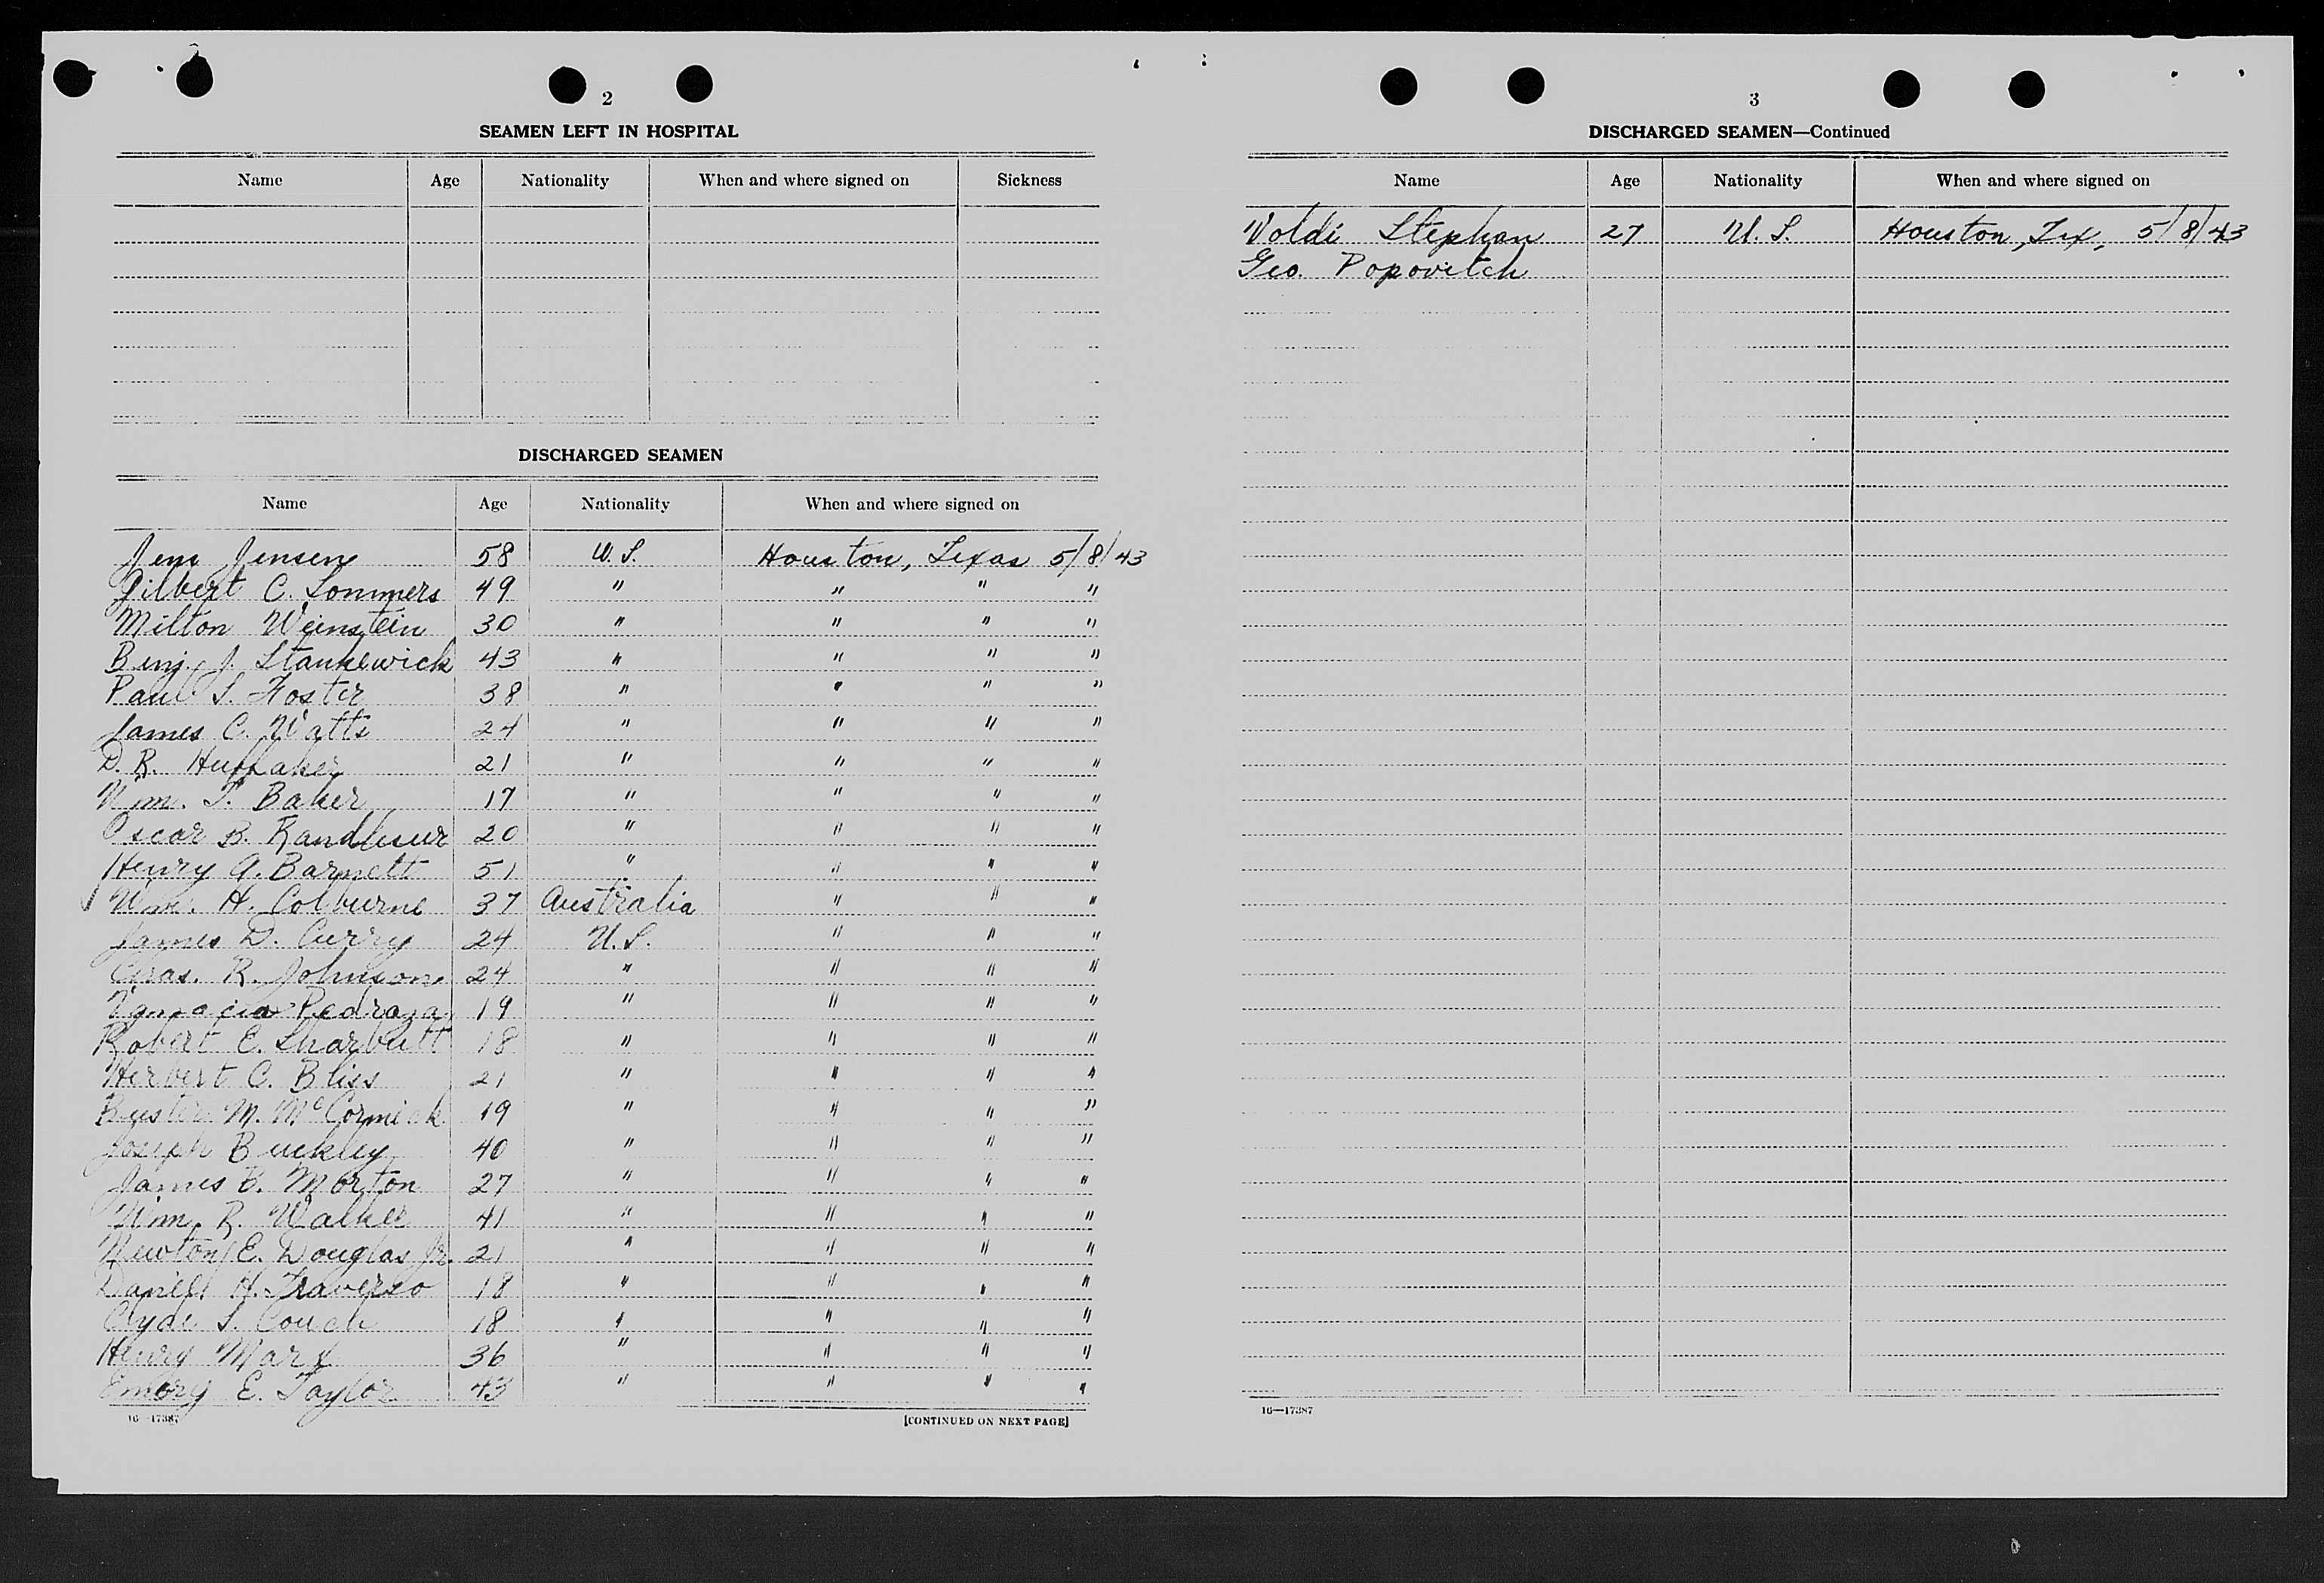 2
SEAMEN LEFT IN HOSPITAL
Name Age Nationality When and where signed on Sickness
DISCHARGED SEAMEN
Name Age Nationality When and where signed on
Jens Jensen 58 U.S. Houston, Texas 5/8/43
Gilbert C. Sommers 49 " " " "
Milton Weinstein 30 " " " "
Benj. J. Stankewich 43 " " " "
Paul S. Foster 38 " " " "
James C. Watts 24 " " " "
D. R. Huffaker 21 " " " "
Wm. T. Baker 17 " " " "
Oscar B. 20 " " " "
Henry A. Barnett 51 " " " "
✓ Wm. H. Colburne 37 Australia " " "
James D. Curry 24 U.S. " " "
Chas. R. Johnson 24 " " " "
Ygnacio Pedraza 19 " " " "
Robert E. Sharbutt 18 " " " "
Herbert C. Bliss 21 " " " "
Buster M. McCormick 19 " " " "
Joseph Buckley 40 " " " "
James B. Morton 27 " " " "
Wm. R. Walker 41 " " " "
Newton E. Douglas Jr. 21 " " " "
Daniel H. Traverso 18 " " " "
Clyde S. Couch 18 " " " "
Henry Marx 36 " " " "
Emory E. Taylor 43 " " " "
16—17387
[CONTINUED ON NEXT PAGE]
3
DISCHARGED SEAMEN—Continued
Name Age Nationality When and where signed on
Voldi Stephan 27 U.S. Houston, Tex, 5/8/43
Geo. Popovitch
16—17387